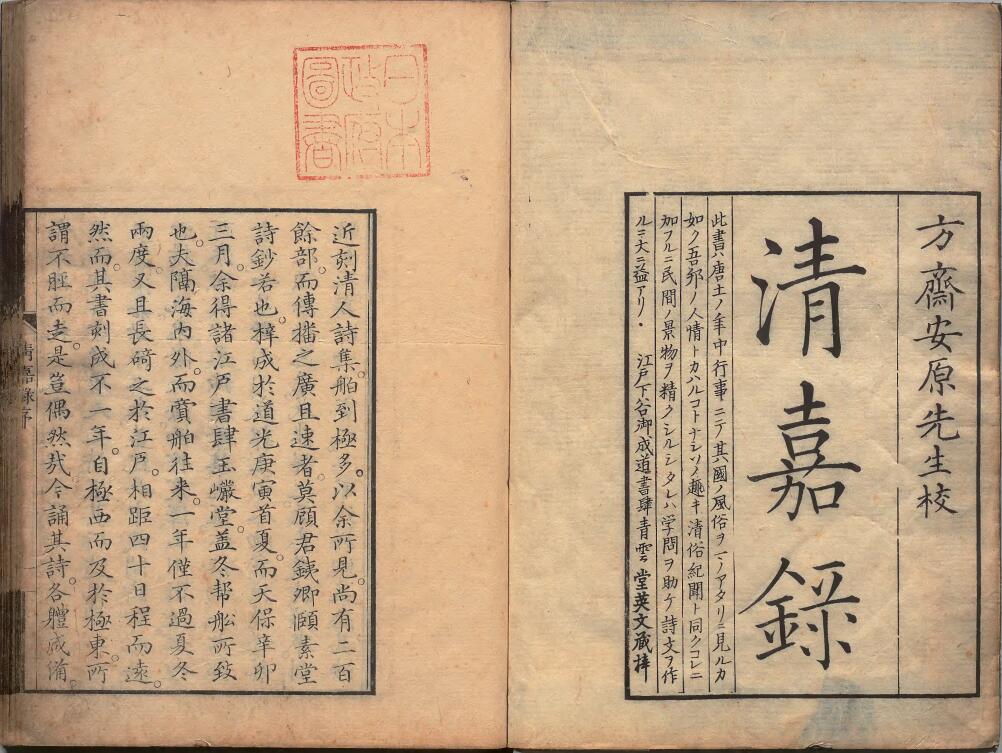 方齋安原先生校
清嘉録
此書ハ唐土ノ年中行事ニテ其國ノ風俗ヲマノアタリニ見ルカ
如ク吾邦ノ人情トカハルコトナシソノ趣キ清俗紀聞ト同クコレニ
加フルニ民間ノ景物ヲ精クシルシタレハ学問ヲ助ケ詩文ヲ作
ルニ大ニ益アリ・ 江戸下谷御成道書肆青雲堂英文蔵梓
日本
政府
圖書
近刻清人詩集。舶到極多。以余所見。尚有二百
餘部。而傳播之廣且速者。莫顧君鉄卿頤素堂
詩鈔若也。梓成於道光庚寅首夏。而天保辛卯
三月。余得諸江戸書肆玉巖堂。盖冬帮舶所致
也。夫隔海内外。而賣舶往来。一年僅不過夏冬
兩度。又且長碕之於江戸。相距四十日程而遠。
然而其書刻成不一年。自極西而及於極東。所
謂不脛而走。是豈偶然㢤今誦其詩。各軆咸備。
清嘉録序